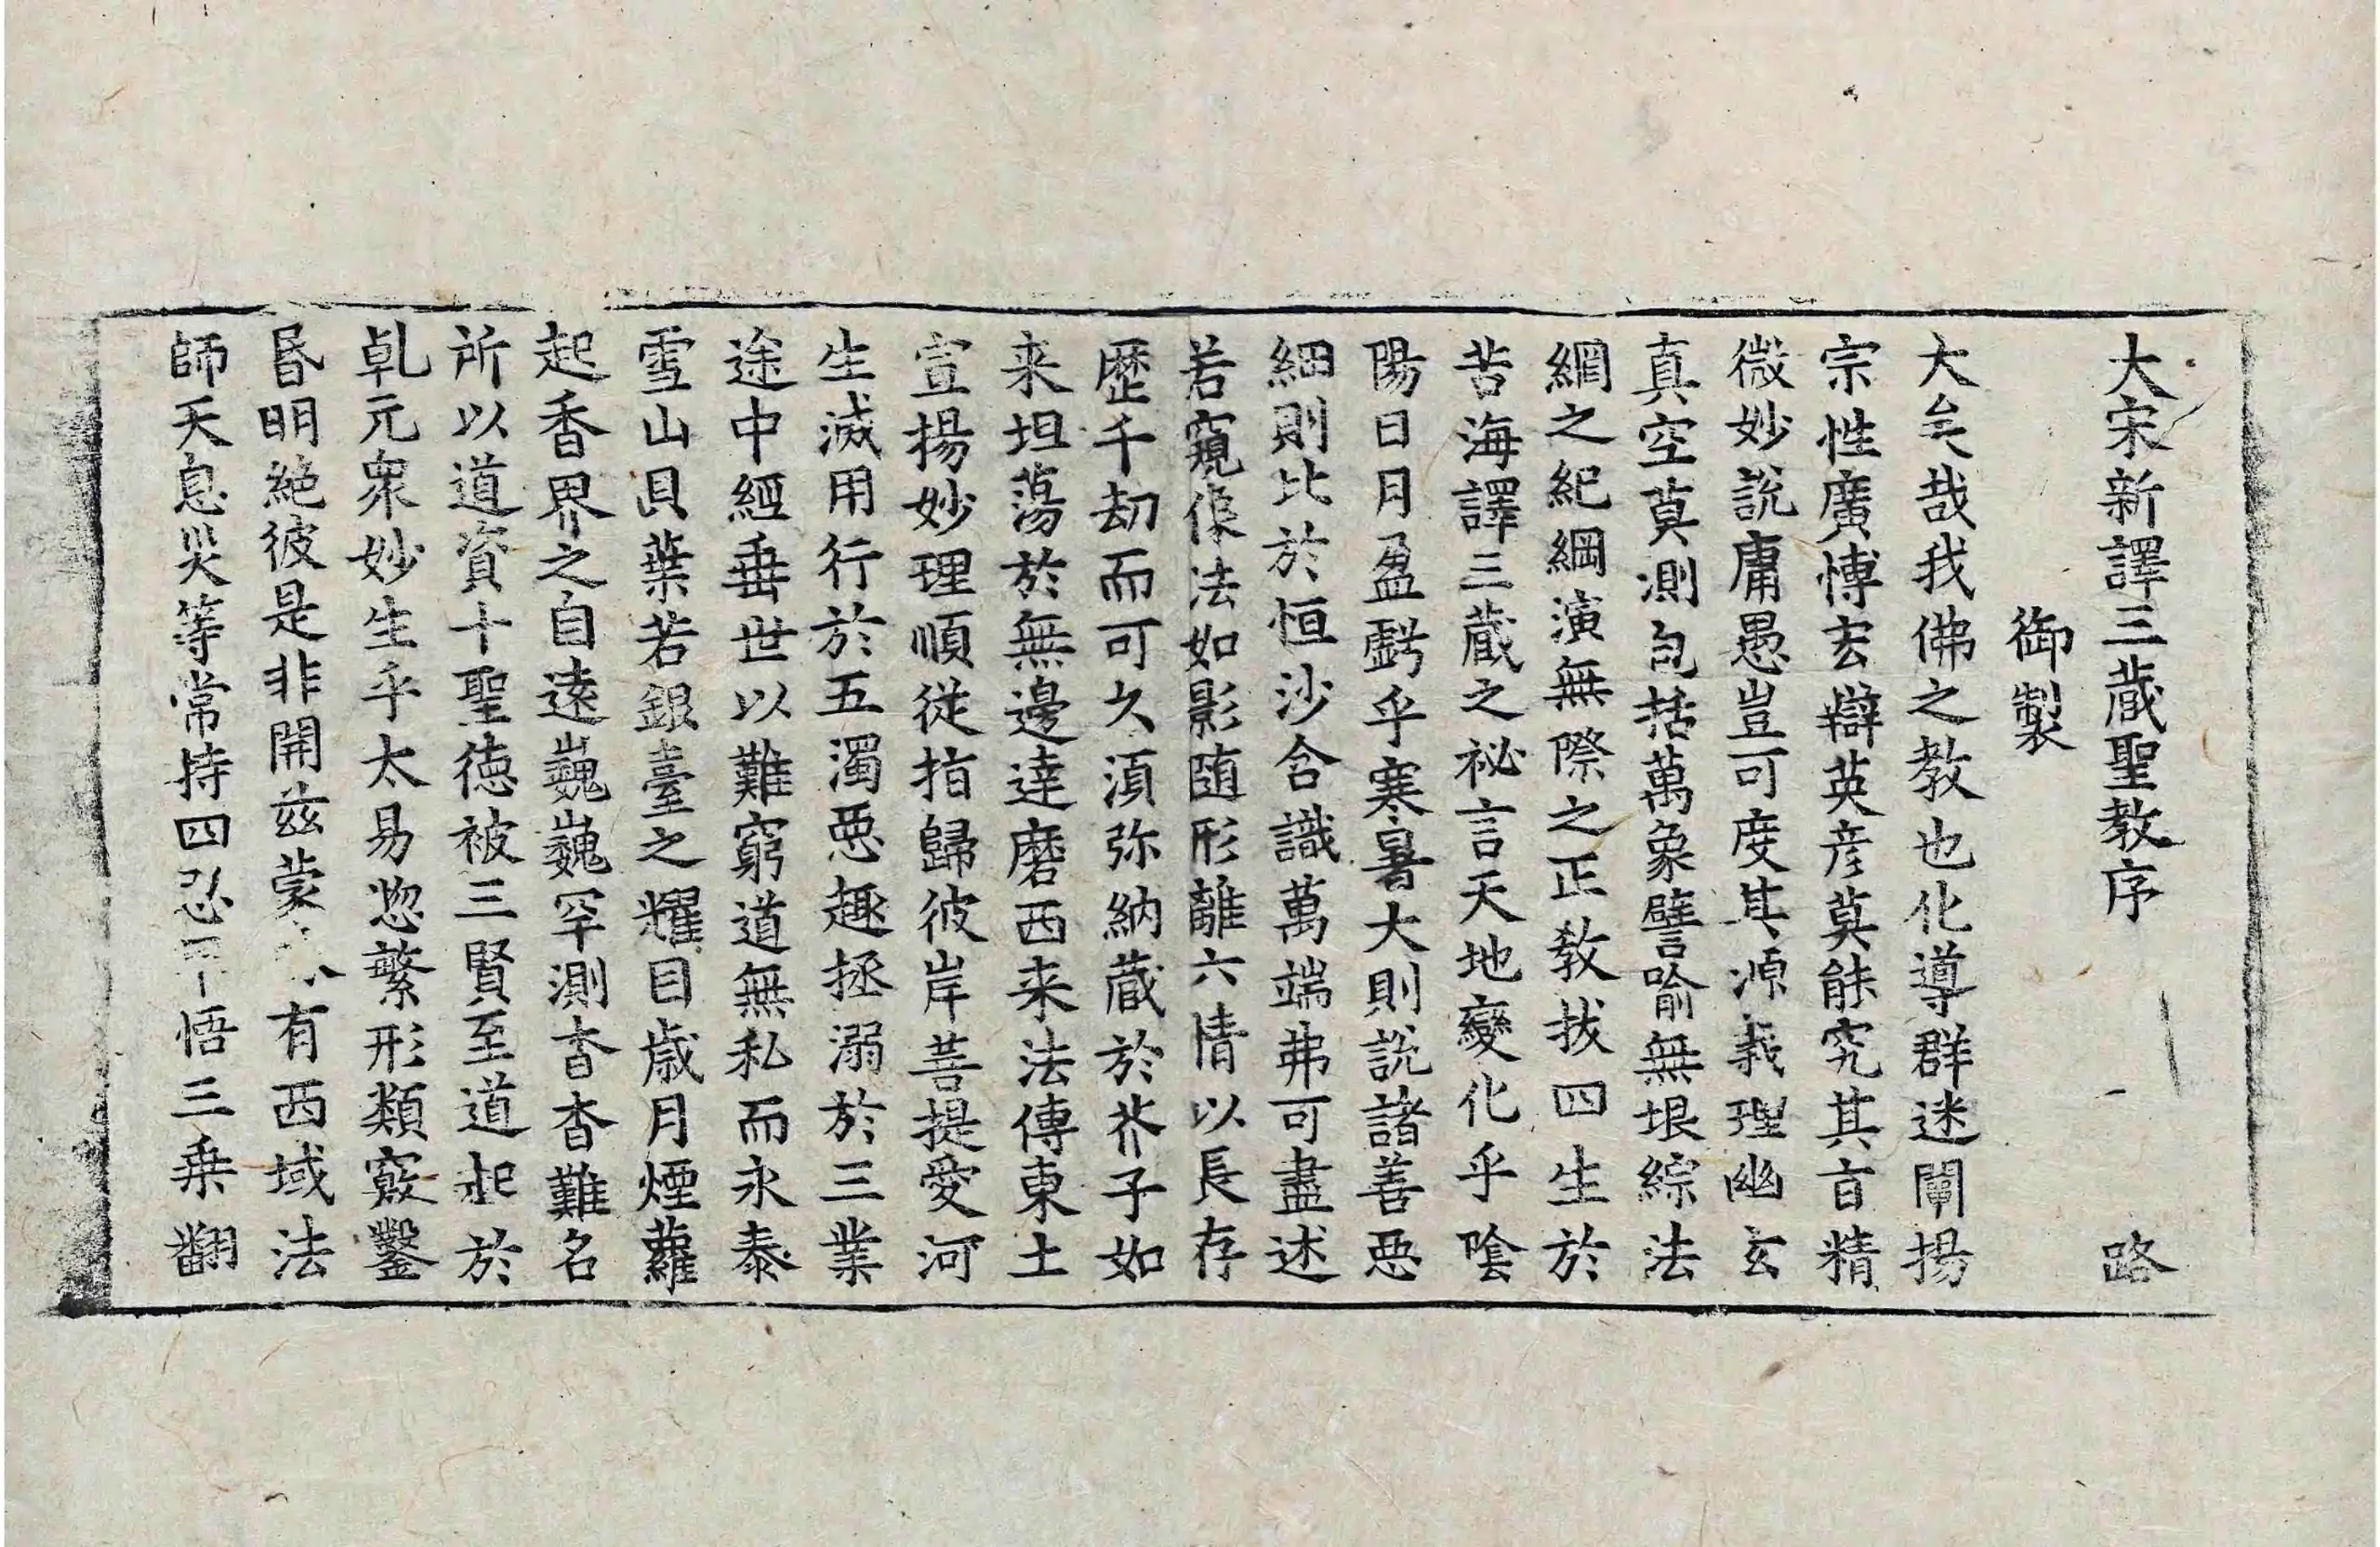 大宋新譯三蔵聖教序　路
御製
大矣哉我佛之教也化導群迷闡揚
宗性廣愽宏辯英彦莫能究其盲精
微妙説庸愚豈可度其源義理幽玄
真空莫測包括萬象譬喻無垠綜法
網之紀綱演無際之正教拔四生於
苦海譯三蔵之祕言天地變化乎陰
陽日月盈虧乎寒暑大則説諸善惡
細則比於恒沙含識萬端弗可盡述
若窺像法如影随形離六情以長存
歴千劫而可久湏弥納蔵於芥子如
来坦蕩於無邊達磨西来法傳東土
宣揚妙理順從指歸彼岸菩提愛河
生滅用行於五濁惡趣拯溺於三業
途中經垂世以難窮道無私而永泰
雪山貝葉若銀臺之耀目歳月煙蘿
起香界之自遠巍巍罕測杳杳難名
所以道資十聖徳被三賢至道起於
乹元衆妙生乎太易惣繁形類竅鑿
昏明絶彼是非開兹蒙有西域法
師天息災等常持四忍悟三乗翻